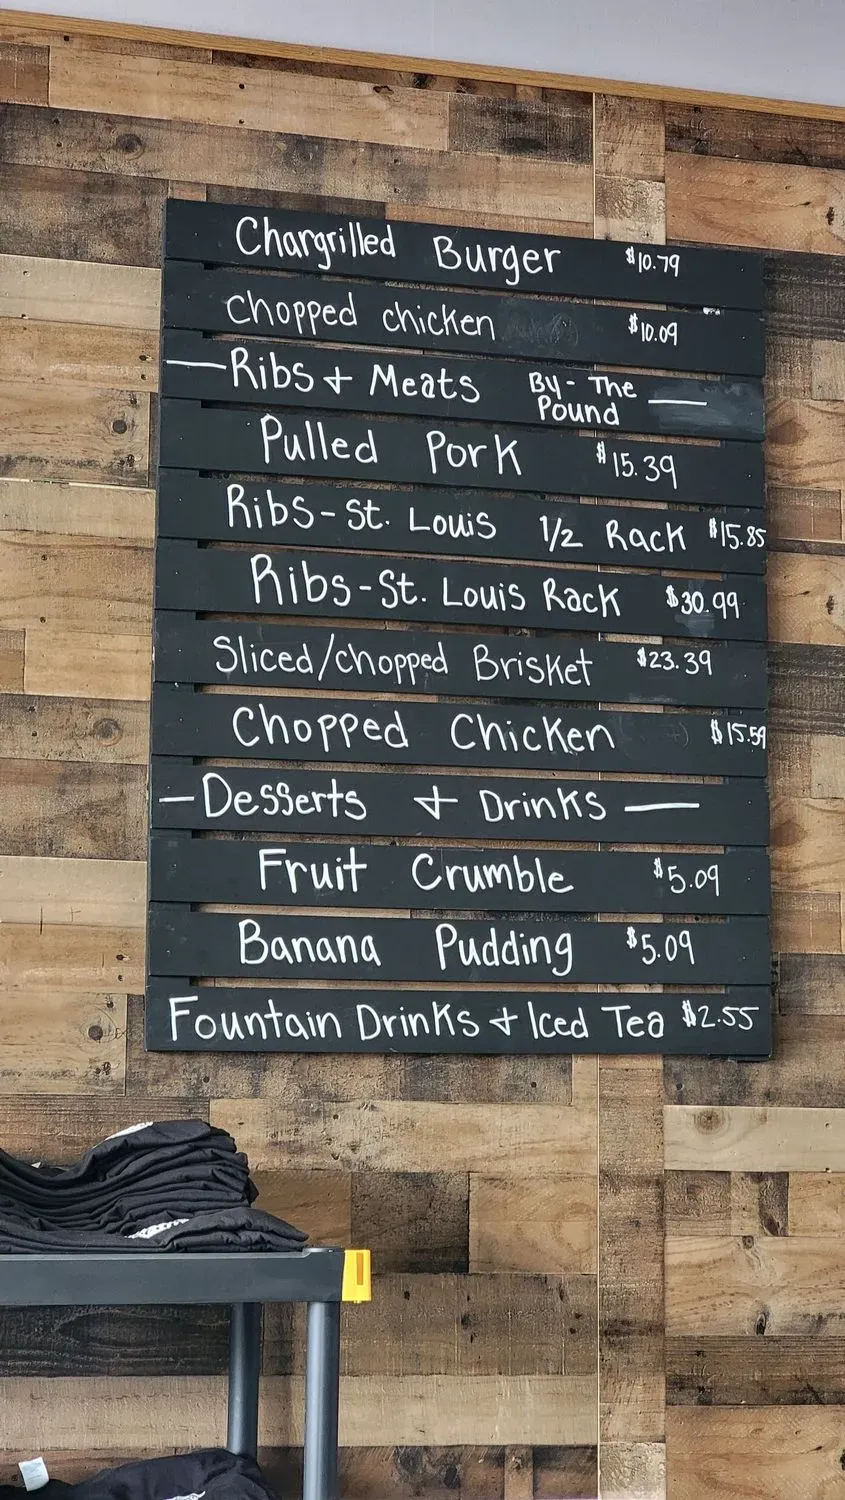 Chargrilled Burger $10.79
chopped chicken $10.09
— Ribs + Meats By - The Pound —
Pulled Pork $15.39
Ribs - St. Louis 1/2 Rack $15.85
Ribs - St. Louis Rack $30.99
Sliced/chopped Brisket $23.39
Chopped Chicken $15.59
— Desserts + Drinks —
Fruit Crumble $5.09
Banana Pudding $5.09
Fountain Drinks + Iced Tea $2.55